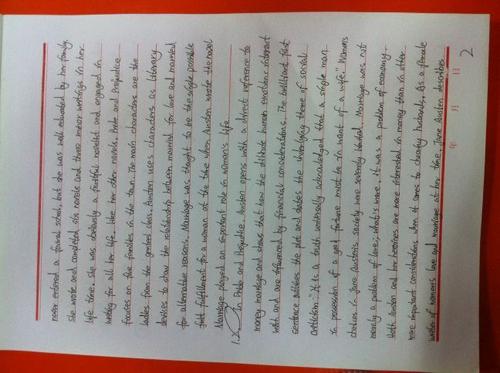 2
年 月 日
never entered a formal school, but she was well educated by her family.
she wrote and completed six novels and three minor writings in her
life time. she was obviously a fruitful novelist and engaged in
writing for all her life. Like her other novels, Pride and Prejudice
focuses on five families in the town. The main characters are the
ladies from the gentry class. Austen uses characters as literary
devices to show the relationship between married for love and married
for alternative reasons. Marriage was thought to be the single possible
full fulfillment for a woman at the time when Austen wrote the novel
Marriage played an important role in women's life
1.2 In Pride and Prejudice Austen opens with a direct reference to
money marriage and shows that how the intimate human emotions interact
with and are influenced by financial considerations. The brilliant first
sentence outlines the plot and states the underlying theme of social
criticism: "It is a truth universally acknowledged that a single man
in possession of a good fortune must be in want of a wife." Women's
choices in Jane Austen's society were severely limited. Marriage was not
merely a problem of love; what's more, it was a problem of economy.
Both Austen and her heroines are more interested in money than in other
more important considerations when it comes to charity husbands. As a female
writer of women's love and marriage at her time, Jane Austen describes